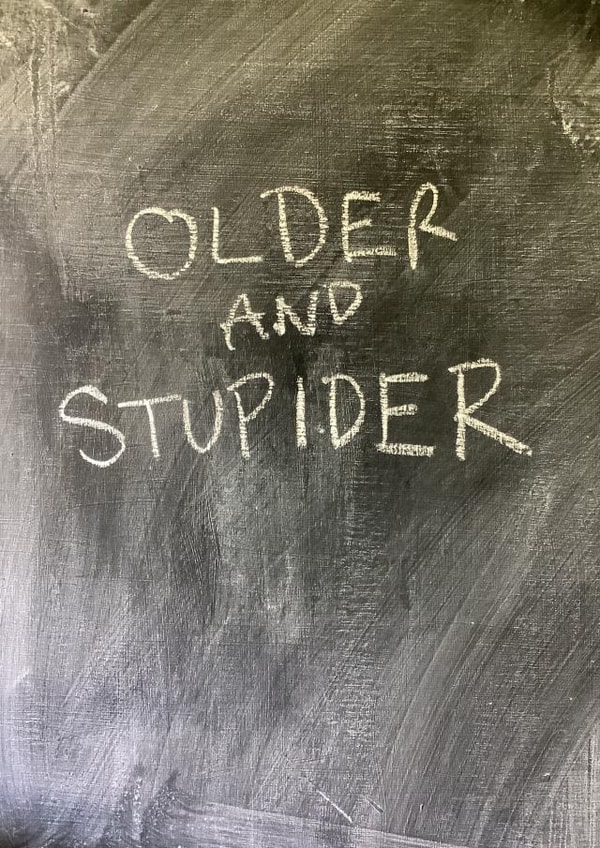 OLDER
AND
STUPIDER